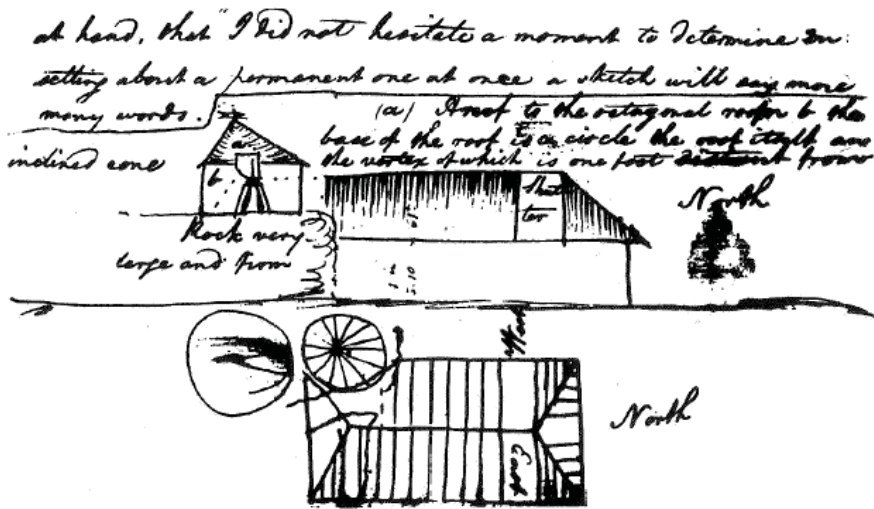 at hand, that "I did not hesitate a moment to determine on
setting about a permanent one at once a sketch will say more
many words.
(a) A roof to the octagonal room b the
base of the roof is a circle the roof itself an
inclined cone
the vortex of which is one foot distant from
a
b
Shut
ter
North
Rock very
large and from
West
North
East